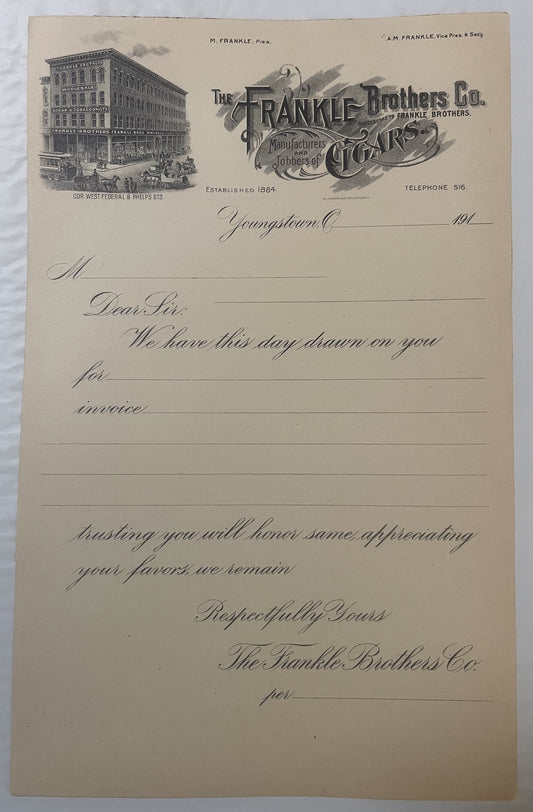 M. FRANKLE, Pres.
A.M. FRANKLE, Vice Pres. & Secy.
FRANKLE BROTHERS
WHOLESALE
CIGAR & TOBACCONISTS
FRANKLE BROTHERS
THE FRANKLE Brothers Co.
SUCCESSORS TO FRANKLE BROTHERS.
Manufacturers
AND
Jobbers of
CIGARS.
COR. WEST FEDERAL & PHELPS STS.
ESTABLISHED 1884.
TELEPHONE 516.
Youngstown, O. 191
M
Dear Sir:
We have this day drawn on you
for
invoice
trusting you will honor same, appreciating
your favors, we remain
Respectfully Yours
The Frankle Brothers Co.
per